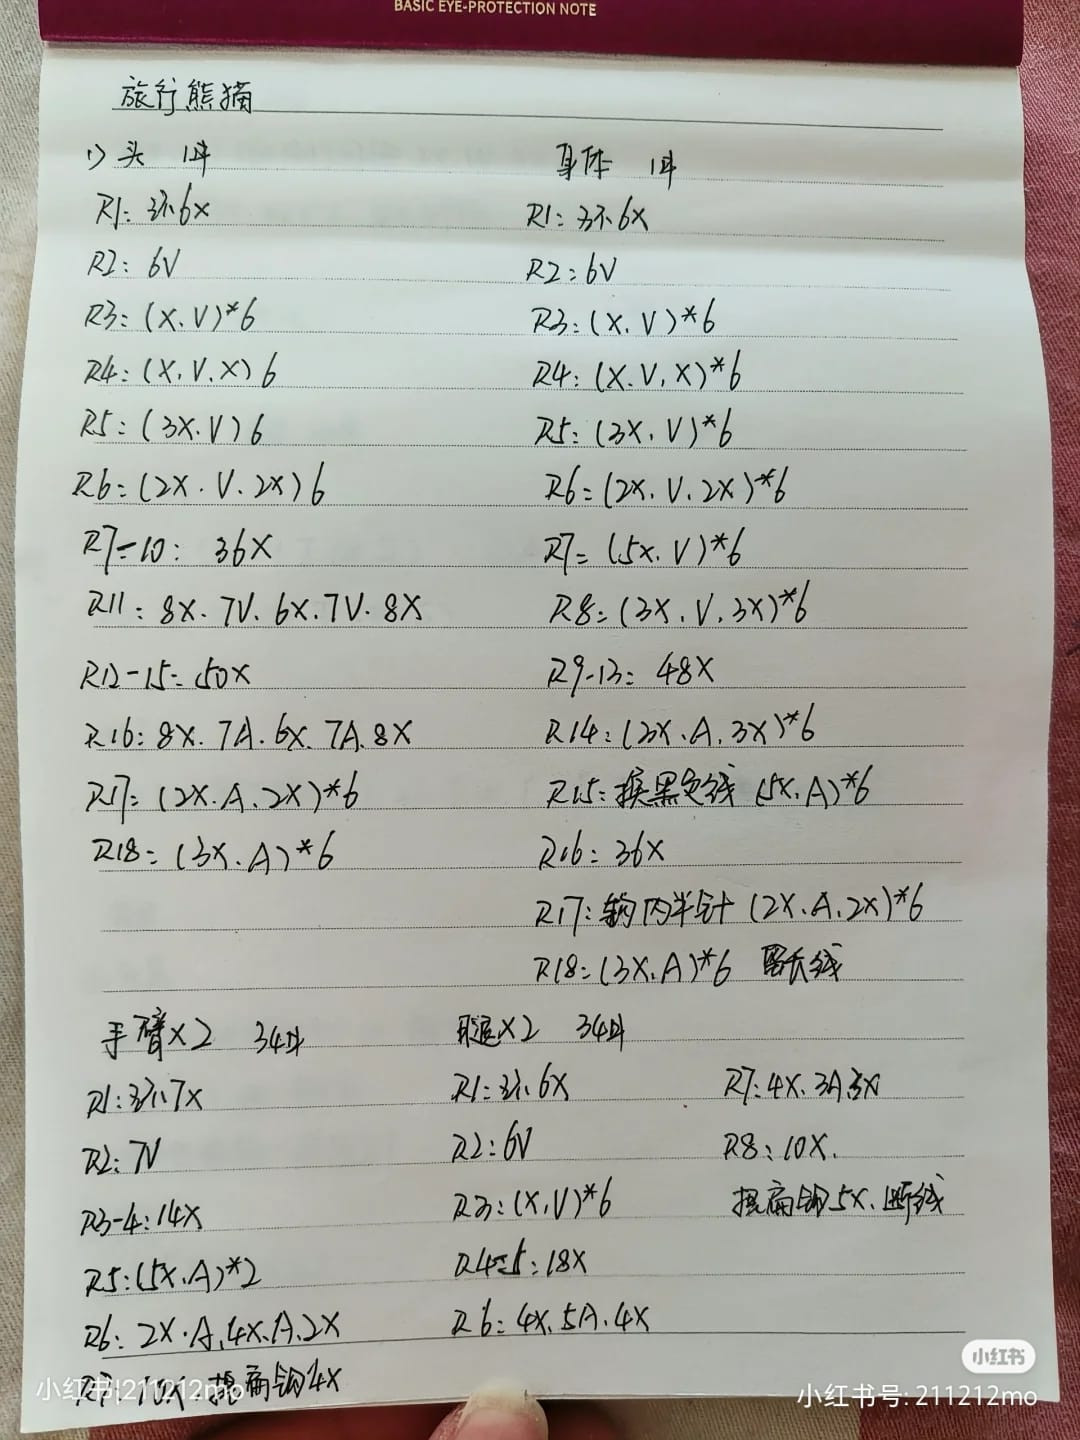 BASIC EYE-PROTECTION NOTE
旅行熊猫
1) 头 1只
R1: 环6X
R2: 6V
R3: (X.V)*6
R4: (X.V.X)6
R5: (3X.V)6
R6: (2X.V.2X)6
R7-10: 36X
R11: 8X.7V.6X.7V.8X
R12-15: 50X
R16: 8X.7A.6X.7A.8X
R17: (2X.A.2X)*6
R18: (3X.A)*6
身体 1只
R1: 环6X
R2: 6V
R3: (X.V)*6
R4: (X.V.X)*6
R5: (3X.V)*6
R6: (2X.V.2X)*6
R7: (5X.V)*6
R8: (3X.V.3X)*6
R9-13: 48X
R14: (3X.A.3X)*6
R15: 换黑色线 (5X.A)*6
R16: 36X
R17: 钩内半针 (2X.A.2X)*6
R18: (3X.A)*6 留长线
手臂X2 34只
R1: 环7X
R2: 7V
R3-4: 14X
R5: (5X.A)*2
R6: 2X.A.4X.A.2X
R7: 10X 捏扁钩4X
腿X2 34只
R1: 环6X
R2: 6V
R3: (X.V)*6
R4-5: 18X
R6: 4X.5A.4X
R7: 4X.3A.3X
R8: 10X.
捏扁钩5X.断线
小红书
小红书|211212mo
小红书号: 211212mo